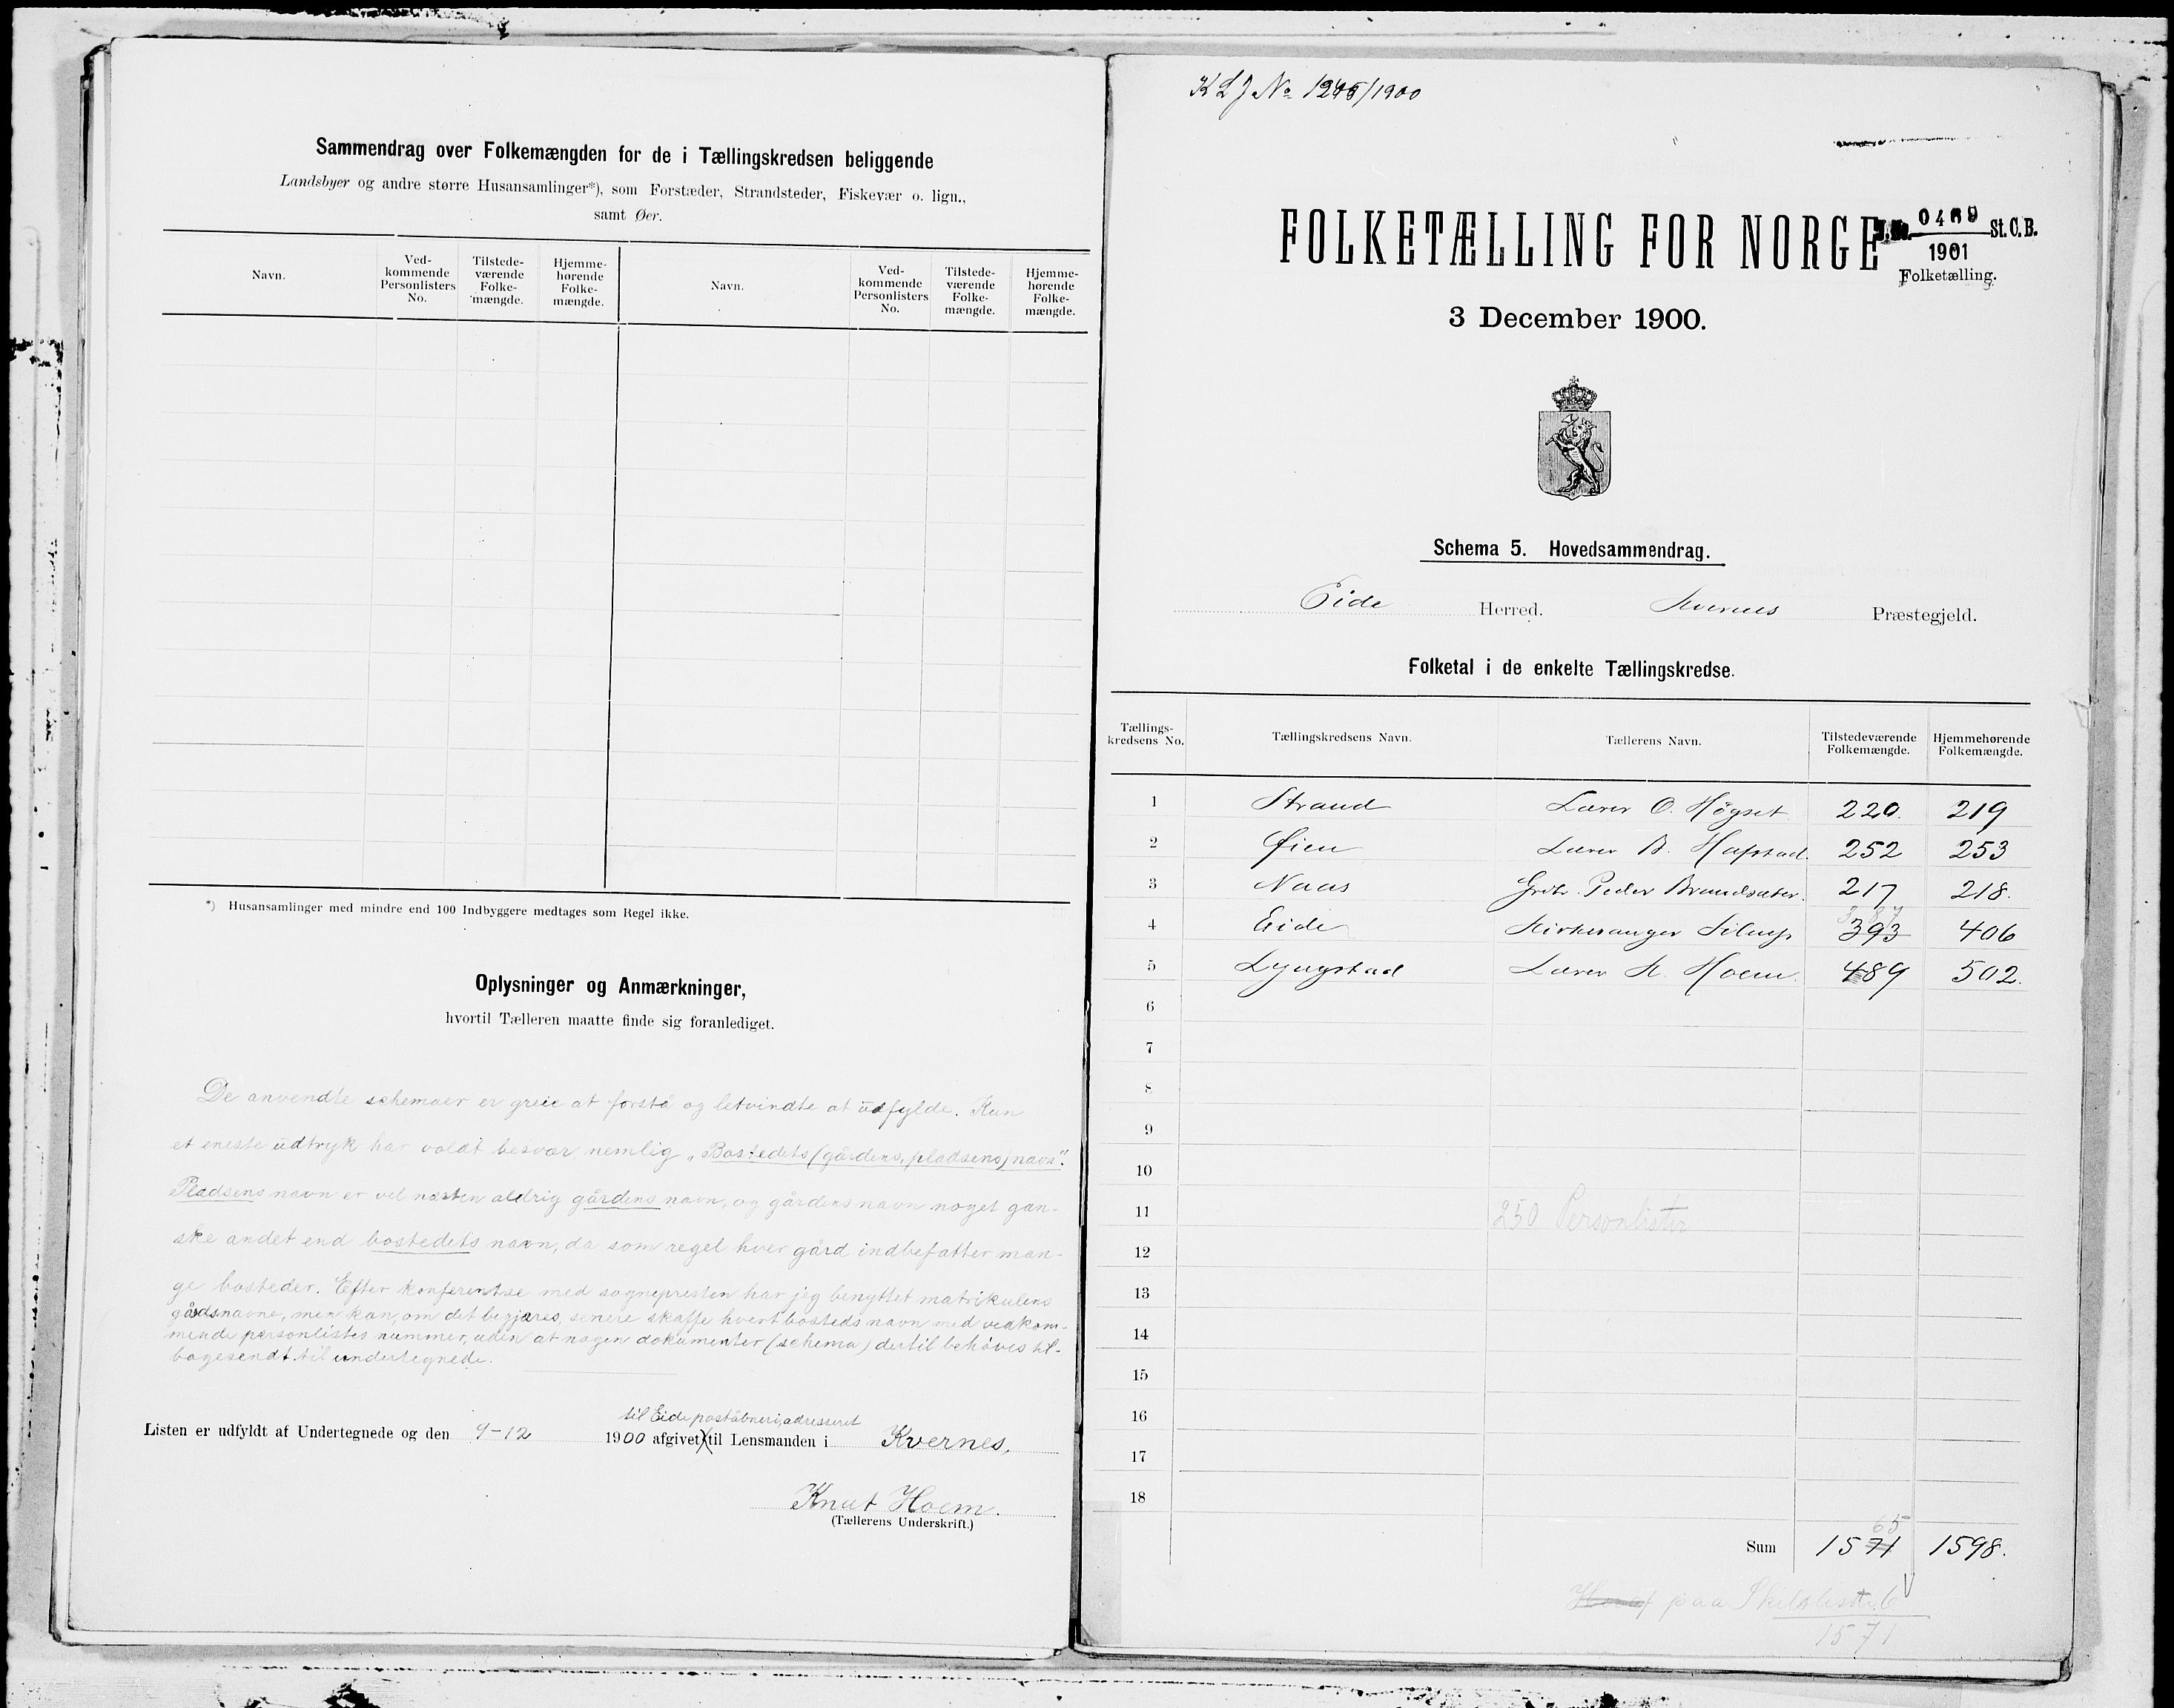 Sammendrag over Folkemængden for de i Tællingskredsen beliggende
Landsbyer og andre større Husansamlinger*), som Forstæder, Strandsteder, Fiskevær o. lign.,
samt Øer.
Navn.
Ved-
kommende
Personlisters
No.
Tilstede-
værende
Folke-
mængde.
Hjemme-
hørende
Folke-
mængde.
Navn.
Ved-
kommende
Personlisters
No.
Tilstede-
værende
Folke-
mængde.
Hjemme-
hørende
Folke-
mængde.
*) Husansamlinger med mindre end 100 Indbyggere medtages som Regel ikke.
Oplysninger og Anmærkninger,
hvortil Tælleren maatte finde sig foranlediget.
De anvendte schemaer er greie at forstå og letvindte at udfylde. Kun
et eneste udtryk har voldt besvær, nemlig „Bostedets (gårdens, pladsens) navn".
Pladsens navn er vel næsten aldrig gårdens navn, og gårdens navn noget gan-
ske andet end bostedets navn, da som regel hver gård indbefatter man-
ge bosteder. Efter konferentse med sognepresten har jeg benyttet matrikulens
gårdsnavne, men kan, om det begjæres, senere skaffe hvert bosteds navn med vedkom-
mende personlistes nummer, uden at nogen dokumenter (schema) dertil behøves til-
bagesendt til undertegnede.
til Eide poståbneri, adresseret
Listen er udfyldt af Undertegnede og den 9-12 1900 afgivet til Lensmanden i Kvernes.
Knut Hoem.
(Tællerens Underskrift.)
K L J No 1245/1900
FOLKETÆLLING FOR NORGE
J. No. 0469 St. C. B.
1901
Folketælling.
3 December 1900.
Schema 5. Hovedsammendrag.
Eide Herred. Kvernes Præstegjeld.
Folketal i de enkelte Tællingskredse.
Tællings-
kredsens No.
Tællingskredsens Navn.
Tællerens Navn.
Tilstedeværende
Folkemængde.
Hjemmehørende
Folkemængde.
1 Strand Lærer O. Högset 220. 219
2 Øien Lærer B. Hafstad. 252 253
3 Naas Grdbr. Peder Brandsæter. 217 218.
387
4 Eide Kirkesanger 393 406
5 Lyngstad Lærer K. Hoem. 489 502.
6
7
8
9
10
11 250 Personlister
12
13
14
15
16
17
18
65
Sum 1571 1598.
Heraf paa Skibsliste 6
1571